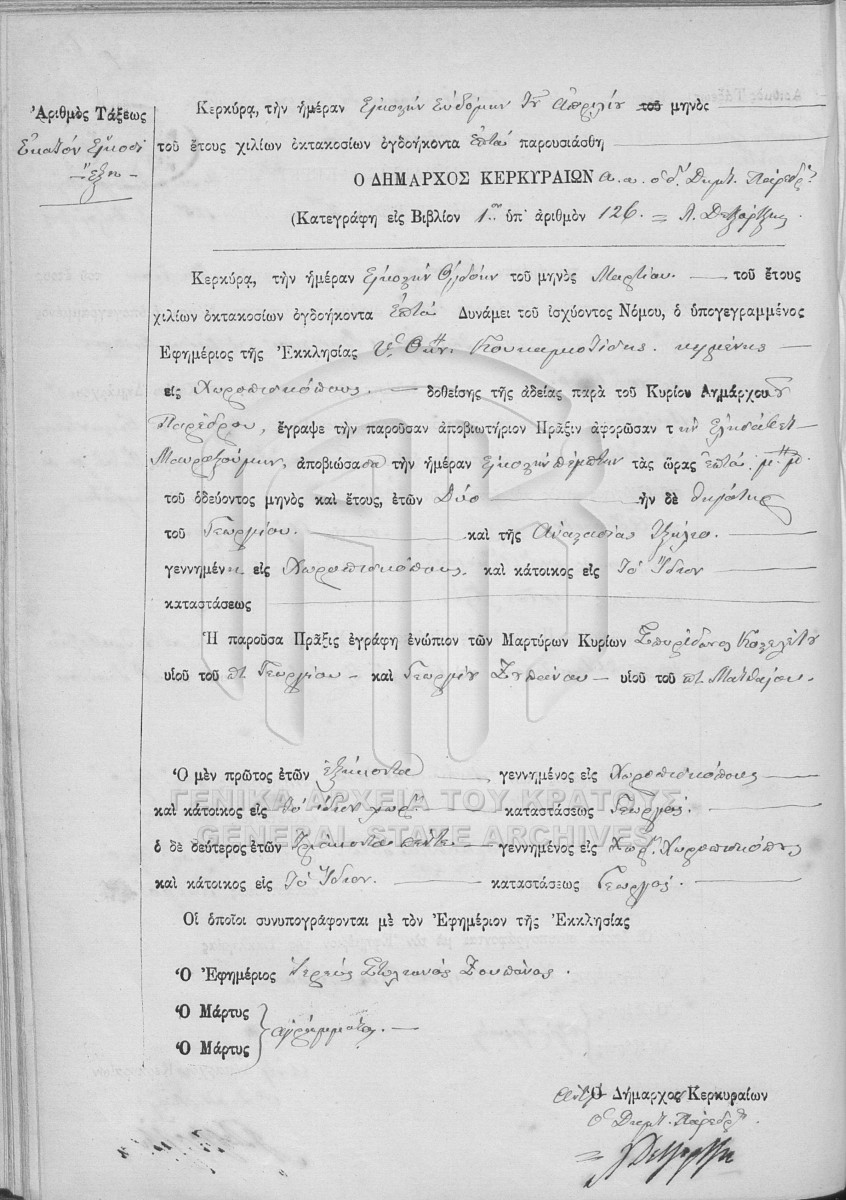 Ἀριθμὸς Τάξεως
Εκατόν Εἴκοσι
Ἕξη
Κερκύρα, τὴν ἡμέραν Εἰκοστὴν Ευδόμην τοῦ Απριλίου τοῦ μηνὸς
τοῦ ἔτους χιλίων ὀκτακοσίων ὀγδοήκοντα ἑπτά παρουσιάσθη
Ο ΔΗΜΑΡΧΟΣ ΚΕΡΚΥΡΑΙΩΝ α. α. ὁ δ. Δημτ. Πάρεδρ.
(Κατεγράφη εἰς Βιβλίον 1ον ὑπ' ἀριθμὸν 126
Κερκύρα, τὴν ἡμέραν Εἰκοστὴν Ογδόην τοῦ μηνὸς Μαρτίου τοῦ ἔτους
χιλίων ὀκτακοσίων ὀγδοήκοντα ἑπτὰ Δυνάμει τοῦ ἰσχύοντος Νόμου, ὁ ὑπογεγραμμένος
Ἐφημέριος τῆς Ἐκκλησίας κημένης
εἰς Χωροπισκόπους δοθείσης τῆς ἀδείας παρὰ τοῦ Κυρίου Δημάρχου
Παρέδρου, ἔγραψε τὴν παροῦσαν ἀποβιωτήριον Πρᾶξιν ἀφορῶσαν τὴν Ελησάβετ
ἀποβιώσασα τὴν ἡμέραν Εἰκοστὴν πέμπτην τὰς ὥρας ἑπτά μ. μ.
τοῦ ὁδεύοντος μηνὸς καὶ ἔτους, ἐτῶν Δύο ἦν δὲ θηγάτηρ
τοῦ Γεωργίου καὶ τῆς Αναστασίας
γεννημένη εἰς Χωροπισκόπους, καὶ κάτοικος εἰς Τὸ Ἴδιον
καταστάσεως
Ἡ παροῦσα Πρᾶξις ἐγράφη ἐνώπιον τῶν Μαρτύρων Κυρίων Σπυρίδωνος
υἱοῦ τοῦ πτ. Γεωργίου καὶ Γεωργίου Ζουπάνου υἱοῦ τοῦ πτ. Ματθαίου.
Ὁ μὲν πρῶτος ἐτῶν ἑξήκοντα γεννημένος εἰς Χωροπισκόπους
καὶ κάτοικος εἰς τὸ ἴδιον χωρ. καταστάσεως Γεωργός.
ὁ δὲ δεύτερος ἐτῶν Τριάκοντα πέντε γεννημένος εἰς Χωρ. Χωροπισκόπους
καὶ κάτοικος εἰς Τὸ Ἴδιον. καταστάσεως Γεωργός.
ΓΕΝΙΚΑ ΑΡΧΕΙΑ ΤΟΥ ΚΡΑΤΟΥΣ
GENERAL STATE ARCHIVES
Οἱ ὁποῖοι συνυπογράφονται μὲ τὸν Ἐφημέριον τῆς Ἐκκλησίας
Ὁ Ἐφημέριος Ἱερεὺς Στυλιανὸς Ζουπάνος.
Ὁ Μάρτυς
Ὁ Μάρτυς
ἀγράμματοι.
Ὁ Δήμαρχος Κερκυραίων
ὁ Δημτ. Πάρεδρ.